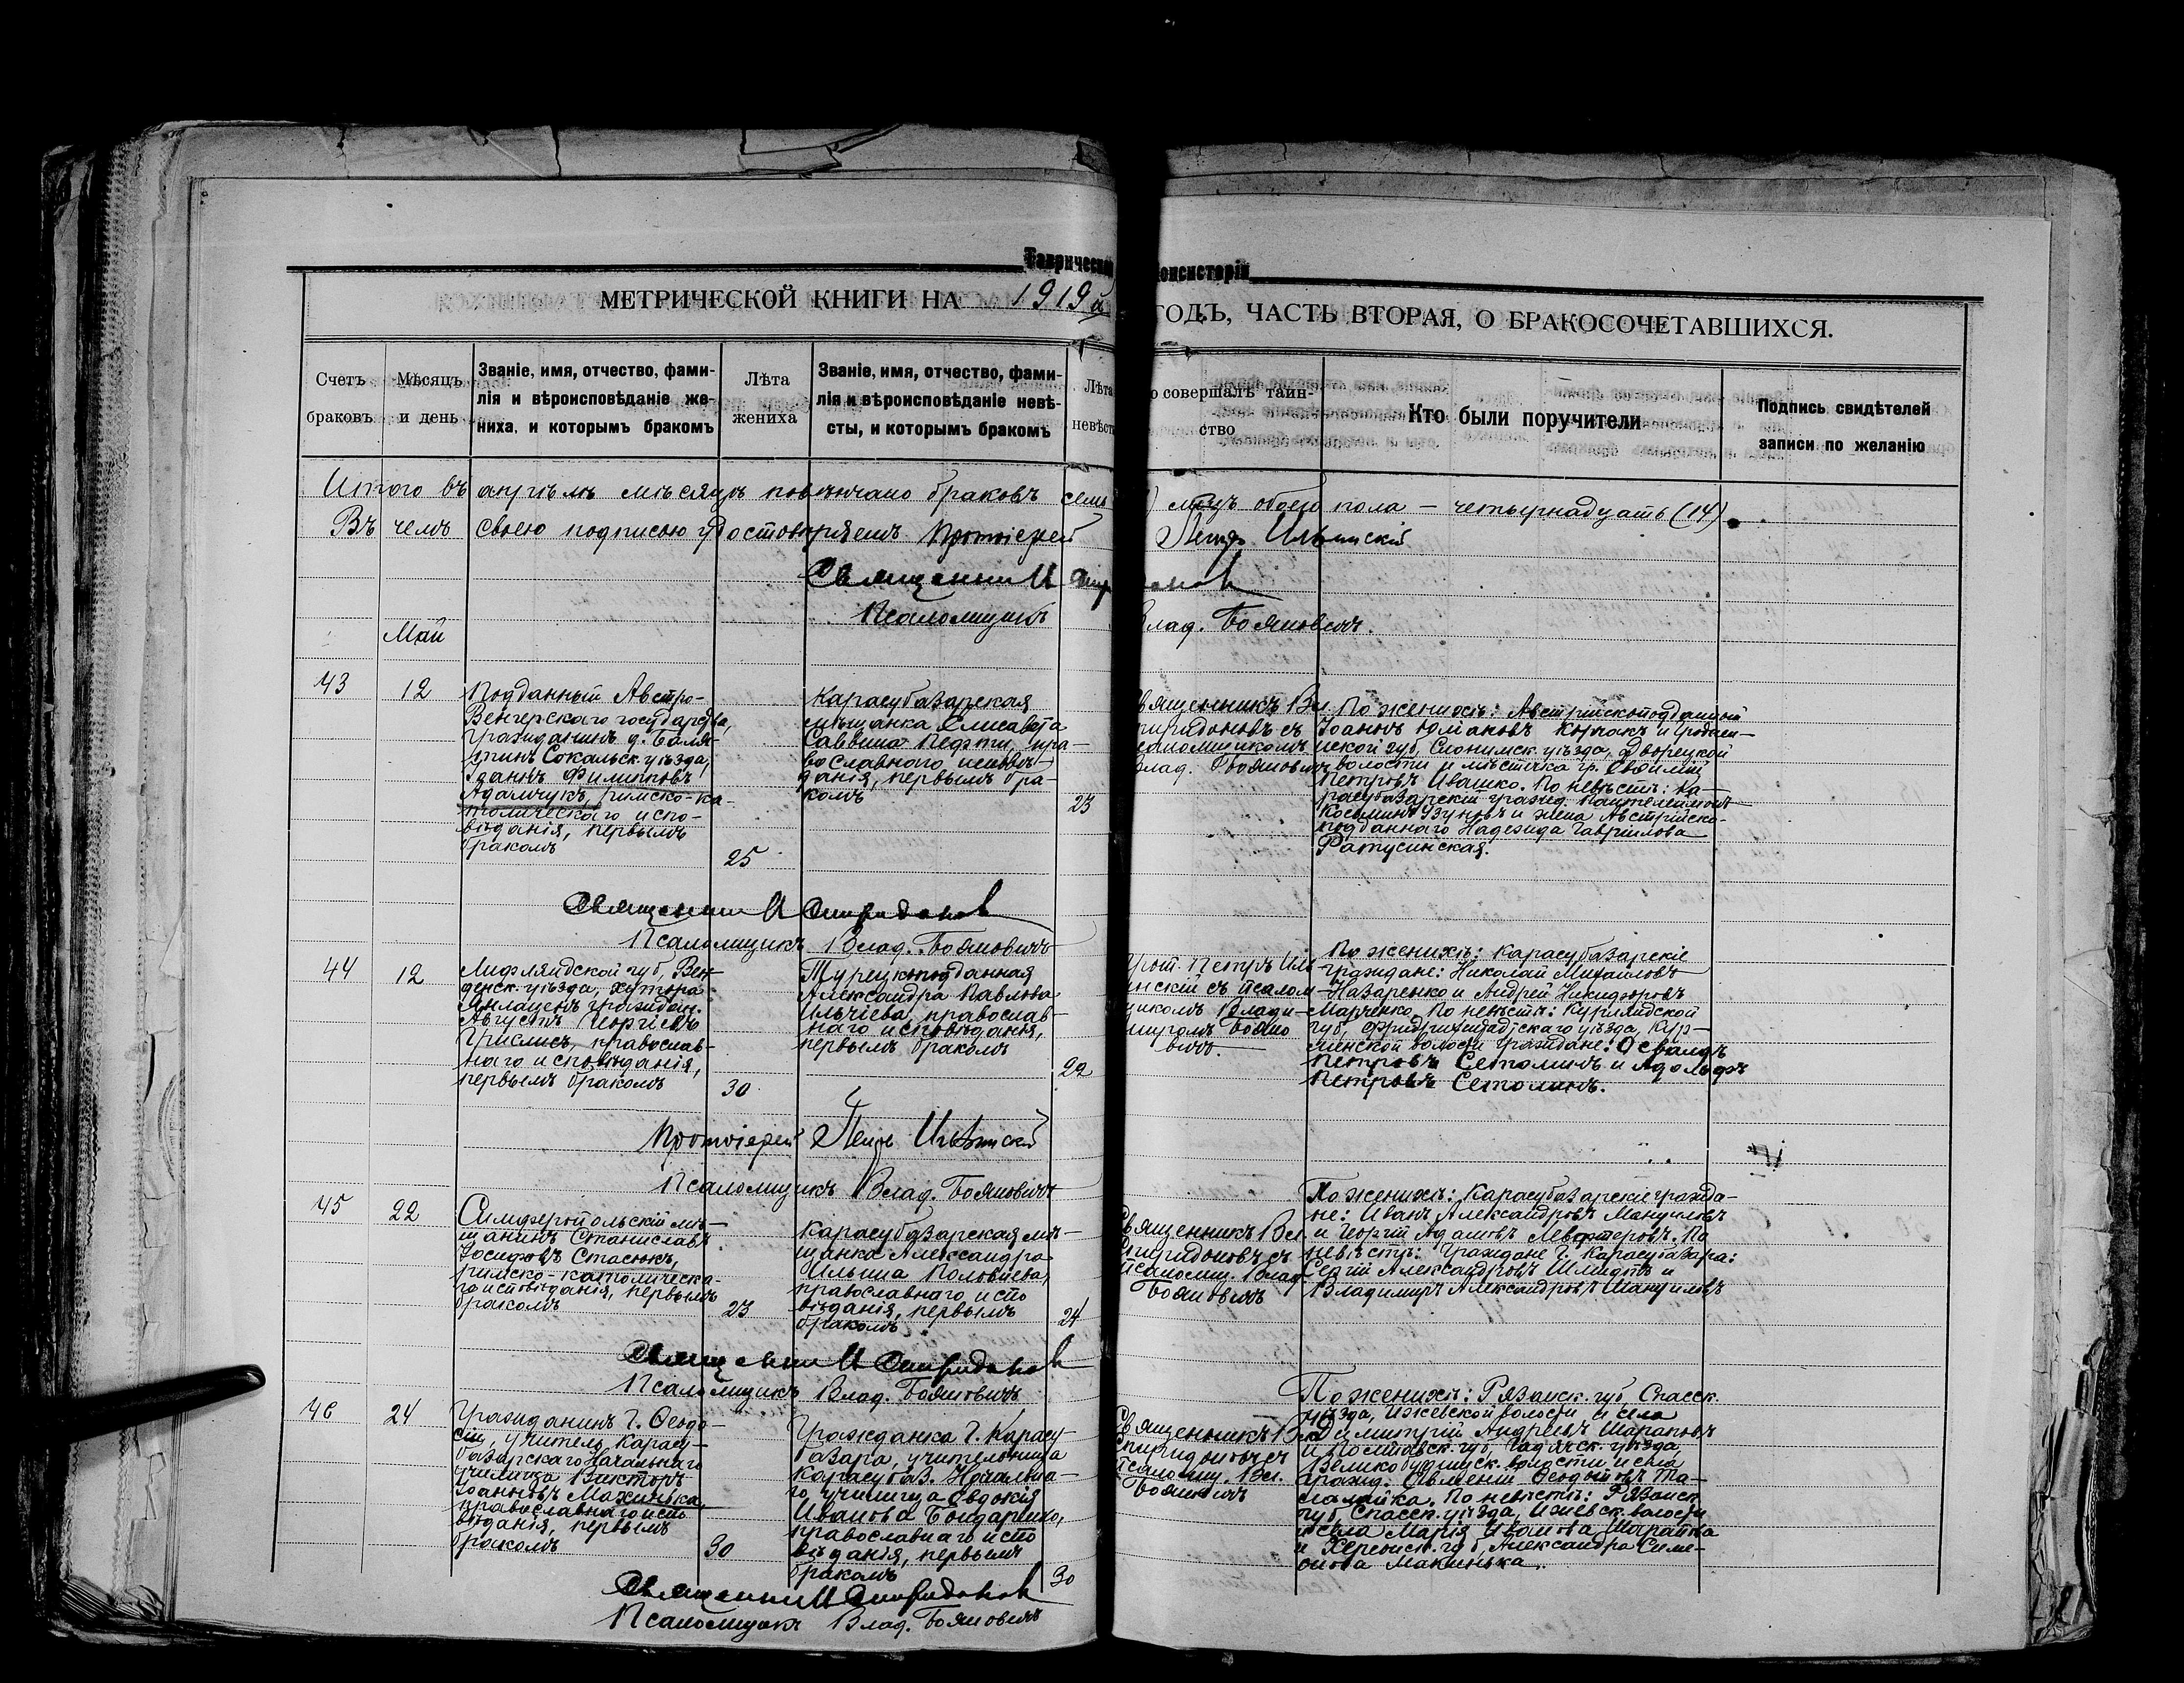 Таврической Консисторіи
МЕТРИЧЕСКОЙ КНИГИ НА 1919й ГОДЪ, ЧАСТЬ ВТОРАЯ, О БРАКОСОЧЕТАВШИХСЯ.
Счетъ
браковъ
Мѣсяцъ
и день
Званіе, имя, отчество, фами-
лія и вѣроисповѣданіе же-
ниха, и которымъ бракомъ
Лѣта
жениха
Званіе, имя, отчество, фами-
лія и вѣроисповѣданіе невѣ-
сты, и которымъ бракомъ
Лѣта
невѣст
о совершалъ таин-
ство
Кто были поручители
Подпись свидѣтелей
записи по желанію
Итого въ апрѣлѣ мѣсяцѣ повѣнчано браковъ семь
) лицъ обоего пола — четырнадцать (14)
Въ чемъ своею подписью удостовѣряемъ Протоіерей
Петръ Ильинскій
Священник
Псаломщикъ
Влад. Бояновичъ.
Май
43
12
Подданный Австро-
Венгерскаго государства,
гражданинъ д.
Сокальск. уѣзда,
Іоаннъ Филипповъ
Адамчукъ, римско-ка-
толическаго испо-
вѣданія, первымъ
бракомъ
25
Карасубазарская
мѣщанка Елисавета
Саввина пра-
вославнаго исповѣ-
данія, первымъ бра-
комъ
23
вященникъ Вл
пиридоновъ съ
саломщикомъ
Влад. Бояновичъ
По женихѣ: Австрійскоподданный
Іоаннъ и Гроднен-
ской губ., Слонимск. уѣзда, Дворецкой
волости и мѣстечка гр. Евфимій
Петровъ Ивашко. По невѣстѣ: Ка-
расубазарскій гражд. Пантелеймонъ
Косьминъ Узуновъ и жена Австрійско-
подданнаго Надежда Гаврилова
Ратусинская.
Священник Спиридонов
Псаломщикъ Влад. Бояновичъ
44
12
Лифляндской губ., Вен-
денск. уѣзда, хутора
гражданин.
Августъ Георгіевъ
Грислисъ, православ-
наго исповѣданія,
первымъ бракомъ
30
Турецкоподданная
Александра Павлова
Ильчіева, православ-
наго исповѣданія,
первымъ бракомъ
22
Прот. Петръ Иль-
инскій съ псалом-
щикомъ Влади-
міромъ Бояно
вичъ.
По женихѣ: Карасубазарскіе
граждане: Николай Михайловъ
Назаренко и Андрей Никифоровъ
Марченко. По невѣстѣ: Курляндской
губ., Фридрихштадтскаго уѣзда, Кур-
менской волости граждане: Освальдъ
Петровъ Сетолинъ и Адольфъ
Петровъ Сетолинъ.
Протоіерей Петръ Ильинскій
Псаломщикъ Влад. Бояновичъ
45
22
Симферопольскій мѣ-
щанинъ Станиславъ
Іосифовъ Стасюкъ,
римско-католическа-
го исповѣданія, первымъ
бракомъ
23
Карасубазарская мѣ-
щанка Александра
Ильина Половнева,
православнаго испо
вѣданія, первымъ
бракомъ
24
Священникъ Вл.
Спиридоновъ съ
псаломщ. Влад.
Бояновичъ
По женихѣ: Карасубазарскіе гражда-
не: Иванъ Александровъ Мануиловъ
и Георгій Адамовъ Левтеровъ. По
невѣстѣ: граждане г. Карасубазара:
Сергій Александровъ Шмидтъ и
Владиміръ Александровъ Мануиловъ
Священник Спиридонов
Псаломщикъ Влад. Бояновичъ
46
24
Гражданинъ г. Ѳеодо-
сіи, учитель Карасу-
базарскаго Начальнаго
училища Викторъ
Іоанновъ Махинька,
православнаго испо
вѣданія, первымъ
бракомъ
30
Гражданка г. Карасу-
базара, учительница
Карасубаз. Начальна-
го училища Евдокія
Иванова Бондаренко,
православнаго испо
вѣданія, первымъ
бракомъ
30
Священникъ Вл.
Спиридоновъ съ
псаломщ. Вл.
Бояновичъ
По женихѣ: Рязанск. губ. Спасск.
уѣзда, Ижевской волости и села
Димитрій Андреевъ Шараповъ
и Полтавск. губ., Гадячск. уѣзда,
Великобудищск. волости и села
гражд. Ѳеодотовъ Та-
По невѣстѣ: Рязанск.
губ., Спасск. уѣзда, Ижевск. волости
и села Марія Иванова Шарапова
и Херсонск. губ., Александра Симе-
онова Макинька.
Священник Спиридонов
Псаломщикъ Влад. Бояновичъ